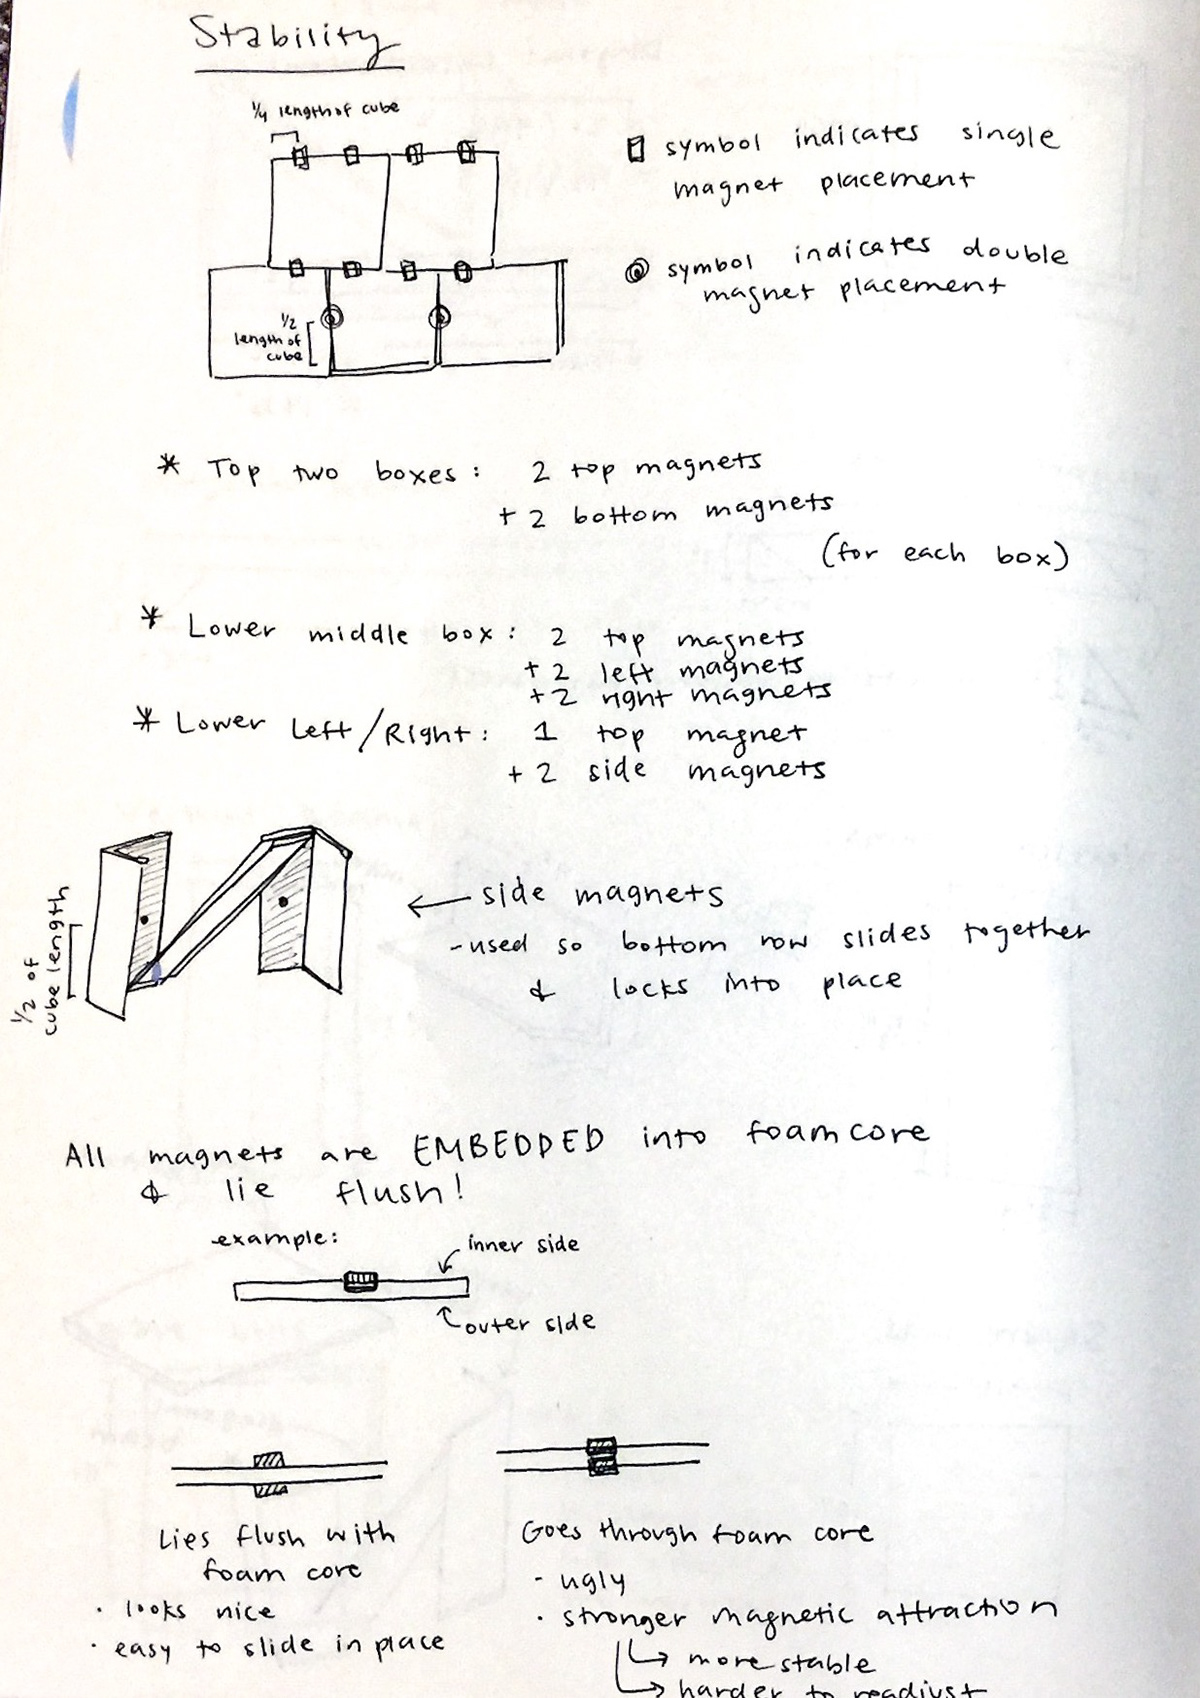 Stability
1/4 length of cube
symbol indicates single
magnet placement
symbol indicates double
magnet placement
1/2
length of
cube
* Top two boxes: 2 top magnets
+ 2 bottom magnets
(for each box)
* Lower middle box: 2 top magnets
+ 2 left magnets
+ 2 right magnets
* Lower Left/Right: 1 top magnet
+ 2 side magnets
1/2 of
cube length
← side magnets
- used so bottom row slides together
& locks into place
All magnets are EMBEDDED into foam core
& lie flush!
example:
inner side
outer side
Lies flush with
foam core
· looks nice
· easy to slide in place
Goes through foam core
- ugly
· stronger magnetic attraction
→ more stable
→ harder to readjust